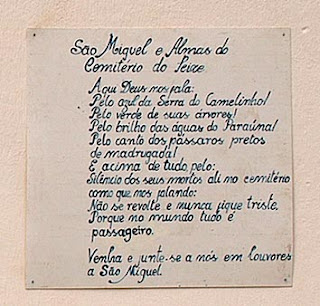 São Miguel e Almas do
Cemitério do Peixe.
Aqui Deus nos fala:
Pelo azul da Serra do Camelinho!
Pelo verde de suas árvores!
Pelo brilho das águas do Paraúna!
Pelo canto dos pássaros pretos
de madrugada!
E acima de tudo pelo:
Silêncio dos seus mortos ali no cemitério
como que nos falando:
Não se revolte e nunca fique triste.
Porque no mundo tudo é
passageiro.
Venha e junte-se a nós em louvores
a São Miguel.